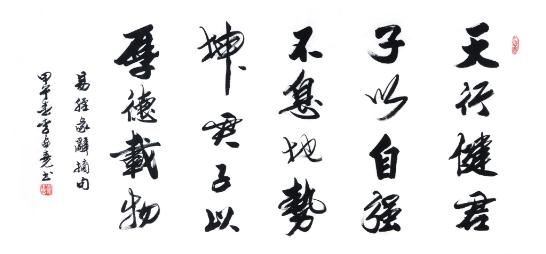 天行健君
子以自强
不息地势
坤君子以
厚德载物
易经象辞摘句
甲午春李